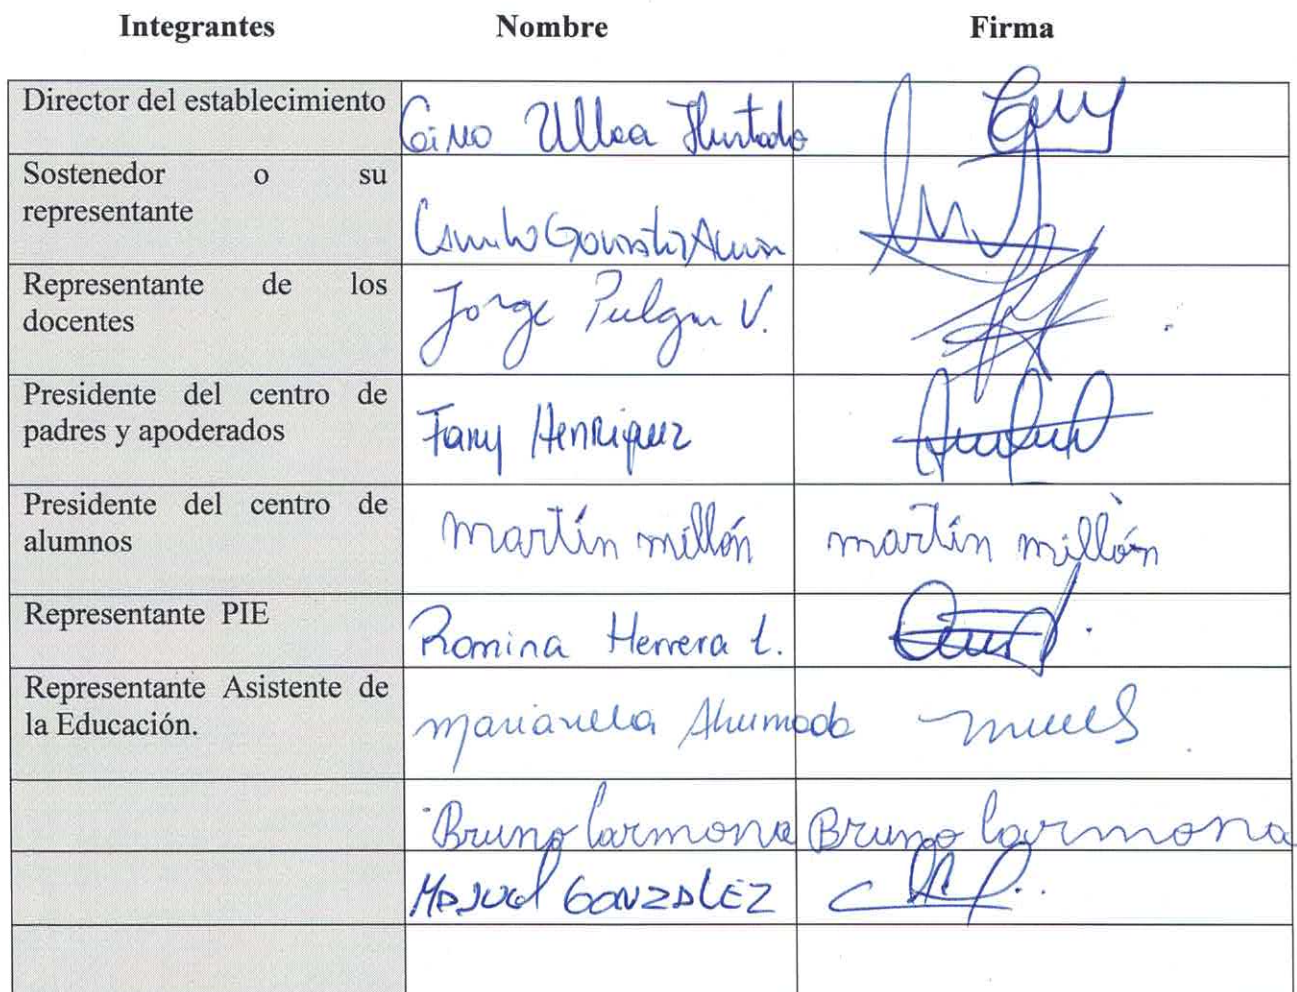 Integrantes Nombre Firma
Director del establecimiento Gino Ulloa Hurtado
Sostenedor o su
representante Camilo González
Representante de los
docentes Jorge Pulgar V.
Presidente del centro de
padres y apoderados Fany Henriquez
Presidente del centro de
alumnos martín millón martín millón
Representante PIE Romina Herrera L.
Representante Asistente de
la Educación. marianela Ahumada
Bruno Carmona Bruno Carmona
GONZALEZ